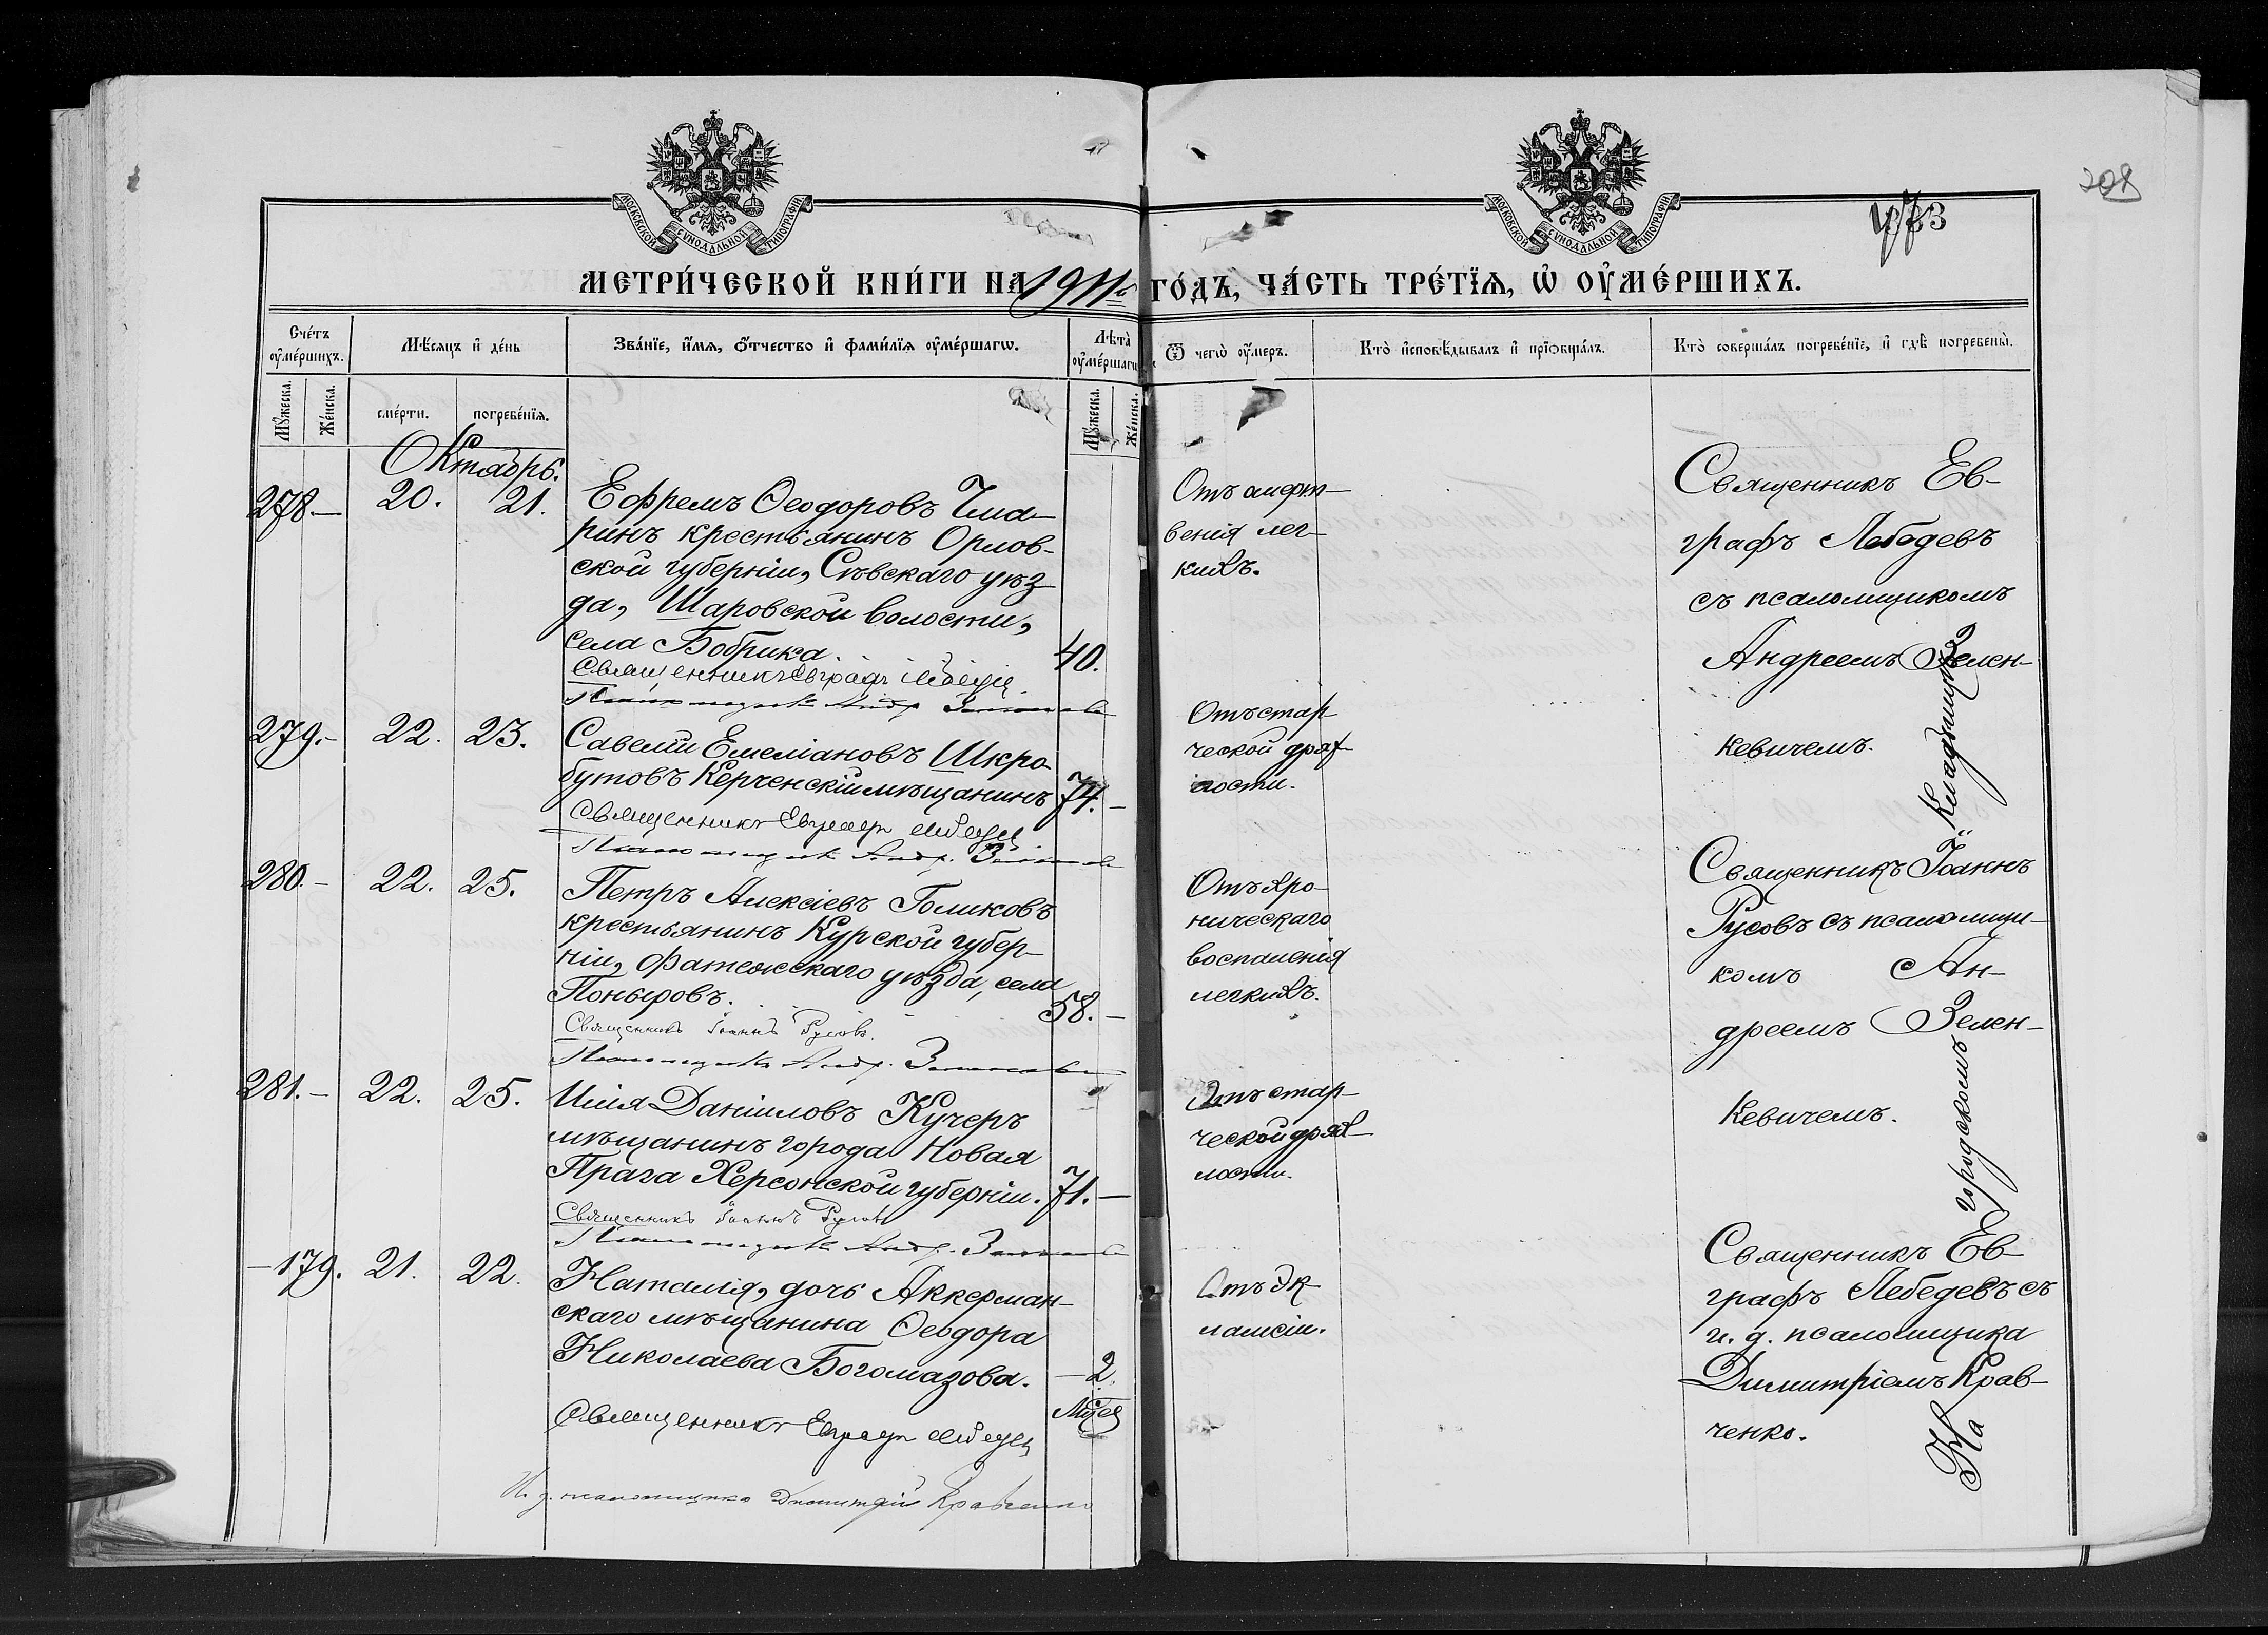 208
473
МОСКОВСКОЙ СѴНОДАЛЬНОЙ ТИПОГРАФІИ
МОСКОВСКОЙ СѴНОДАЛЬНОЙ ТИПОГРАФІИ
МЕТРИ́ЧЕСКОЙ КНИ́ГИ НА 1911й ГО́ДЪ, ЧА́СТЬ ТРЕ́ТЇѦ, Ѡ҆ ОУ҆МЕ́РШИХЪ.
Сче́тъ оу҆ме́ршихъ.
Мѣ́сяцъ и҆ де́нь
Зва́нїе, и҆́мя, ѻ҆́тчество и҆ фами́лїя оу҆ме́ршагѡ.
Лѣта̀ оу҆ме́ршагѡ
Ѿ чегѡ̀ оу҆́меръ.
Кто̀ и҆сповѣ́дывалъ и҆ прїѡбща́лъ.
Кто̀ соверша́лъ погребе́нїе, и҆ гдѣ̀ погребены̀.
Мꙋ́жеска.
Же́нска.
сме́рти.
погребе́нїя.
Мꙋ́жеска.
Же́нска.
Октябрь.
278.— 20. 21.
Ефремъ Ѳеодоровъ
ринъ крестьянинъ Орлов-
ской губерніи, Сѣвскаго уѣз
да, Шаровской волости,
села Бобрика. 40.
Священникъ Евграфъ Лебедев
Псаломщикъ Андр.
Отъ
венія лег-
кихъ.
Священникъ Ев-
графъ Лебедевъ
съ псаломщикомъ
Андреемъ Зелен-
кевичемъ.
279.— 22. 23.
Савелій Емеліановъ Шкро-
бутовъ Керченскій мѣщанинъ 74.—
Священникъ Евграфъ Лебедев
Псаломщикъ Андр.
Отъ стар
ческой дрях-
лости.
280.— 22. 25.
Петръ Алексіевъ Голиковъ
крестьянинъ Курской губер-
ніи, Фатежскаго уѣзда, села
Поныровъ. 58.—
Священникъ Іоаннъ Русовъ.
Псаломщикъ Андр.
Отъ хро-
ническаго
воспаленія
легкихъ.
Священникъ Іоаннъ
Русовъ съ псаломщи-
комъ Ан-
дреемъ Зелен-
кевичемъ.
281.— 22. 25.
Илія Даніиловъ Кучеръ
мѣщанинъ города Новая
Прага Херсонской губерніи. 71.—
Священникъ Іоаннъ Русовъ
Псаломщикъ Андр.
Отъ стар-
ческой дрях-
лости.
—179. 21. 22.
Наталія, дочь Аккерман-
скаго мѣщанина Ѳеодора
Николаева Богомазова. —2.
Мѣс
Священникъ Евграфъ Лебедев
И. д. псаломщика Димитрій Кравченко
Отъ эк-
лампсіи.
Священникъ Ев-
графъ Лебедевъ съ
и. д. псаломщика
Димитріемъ Крав-
ченко.
На
городскомъ
кладбищѣ